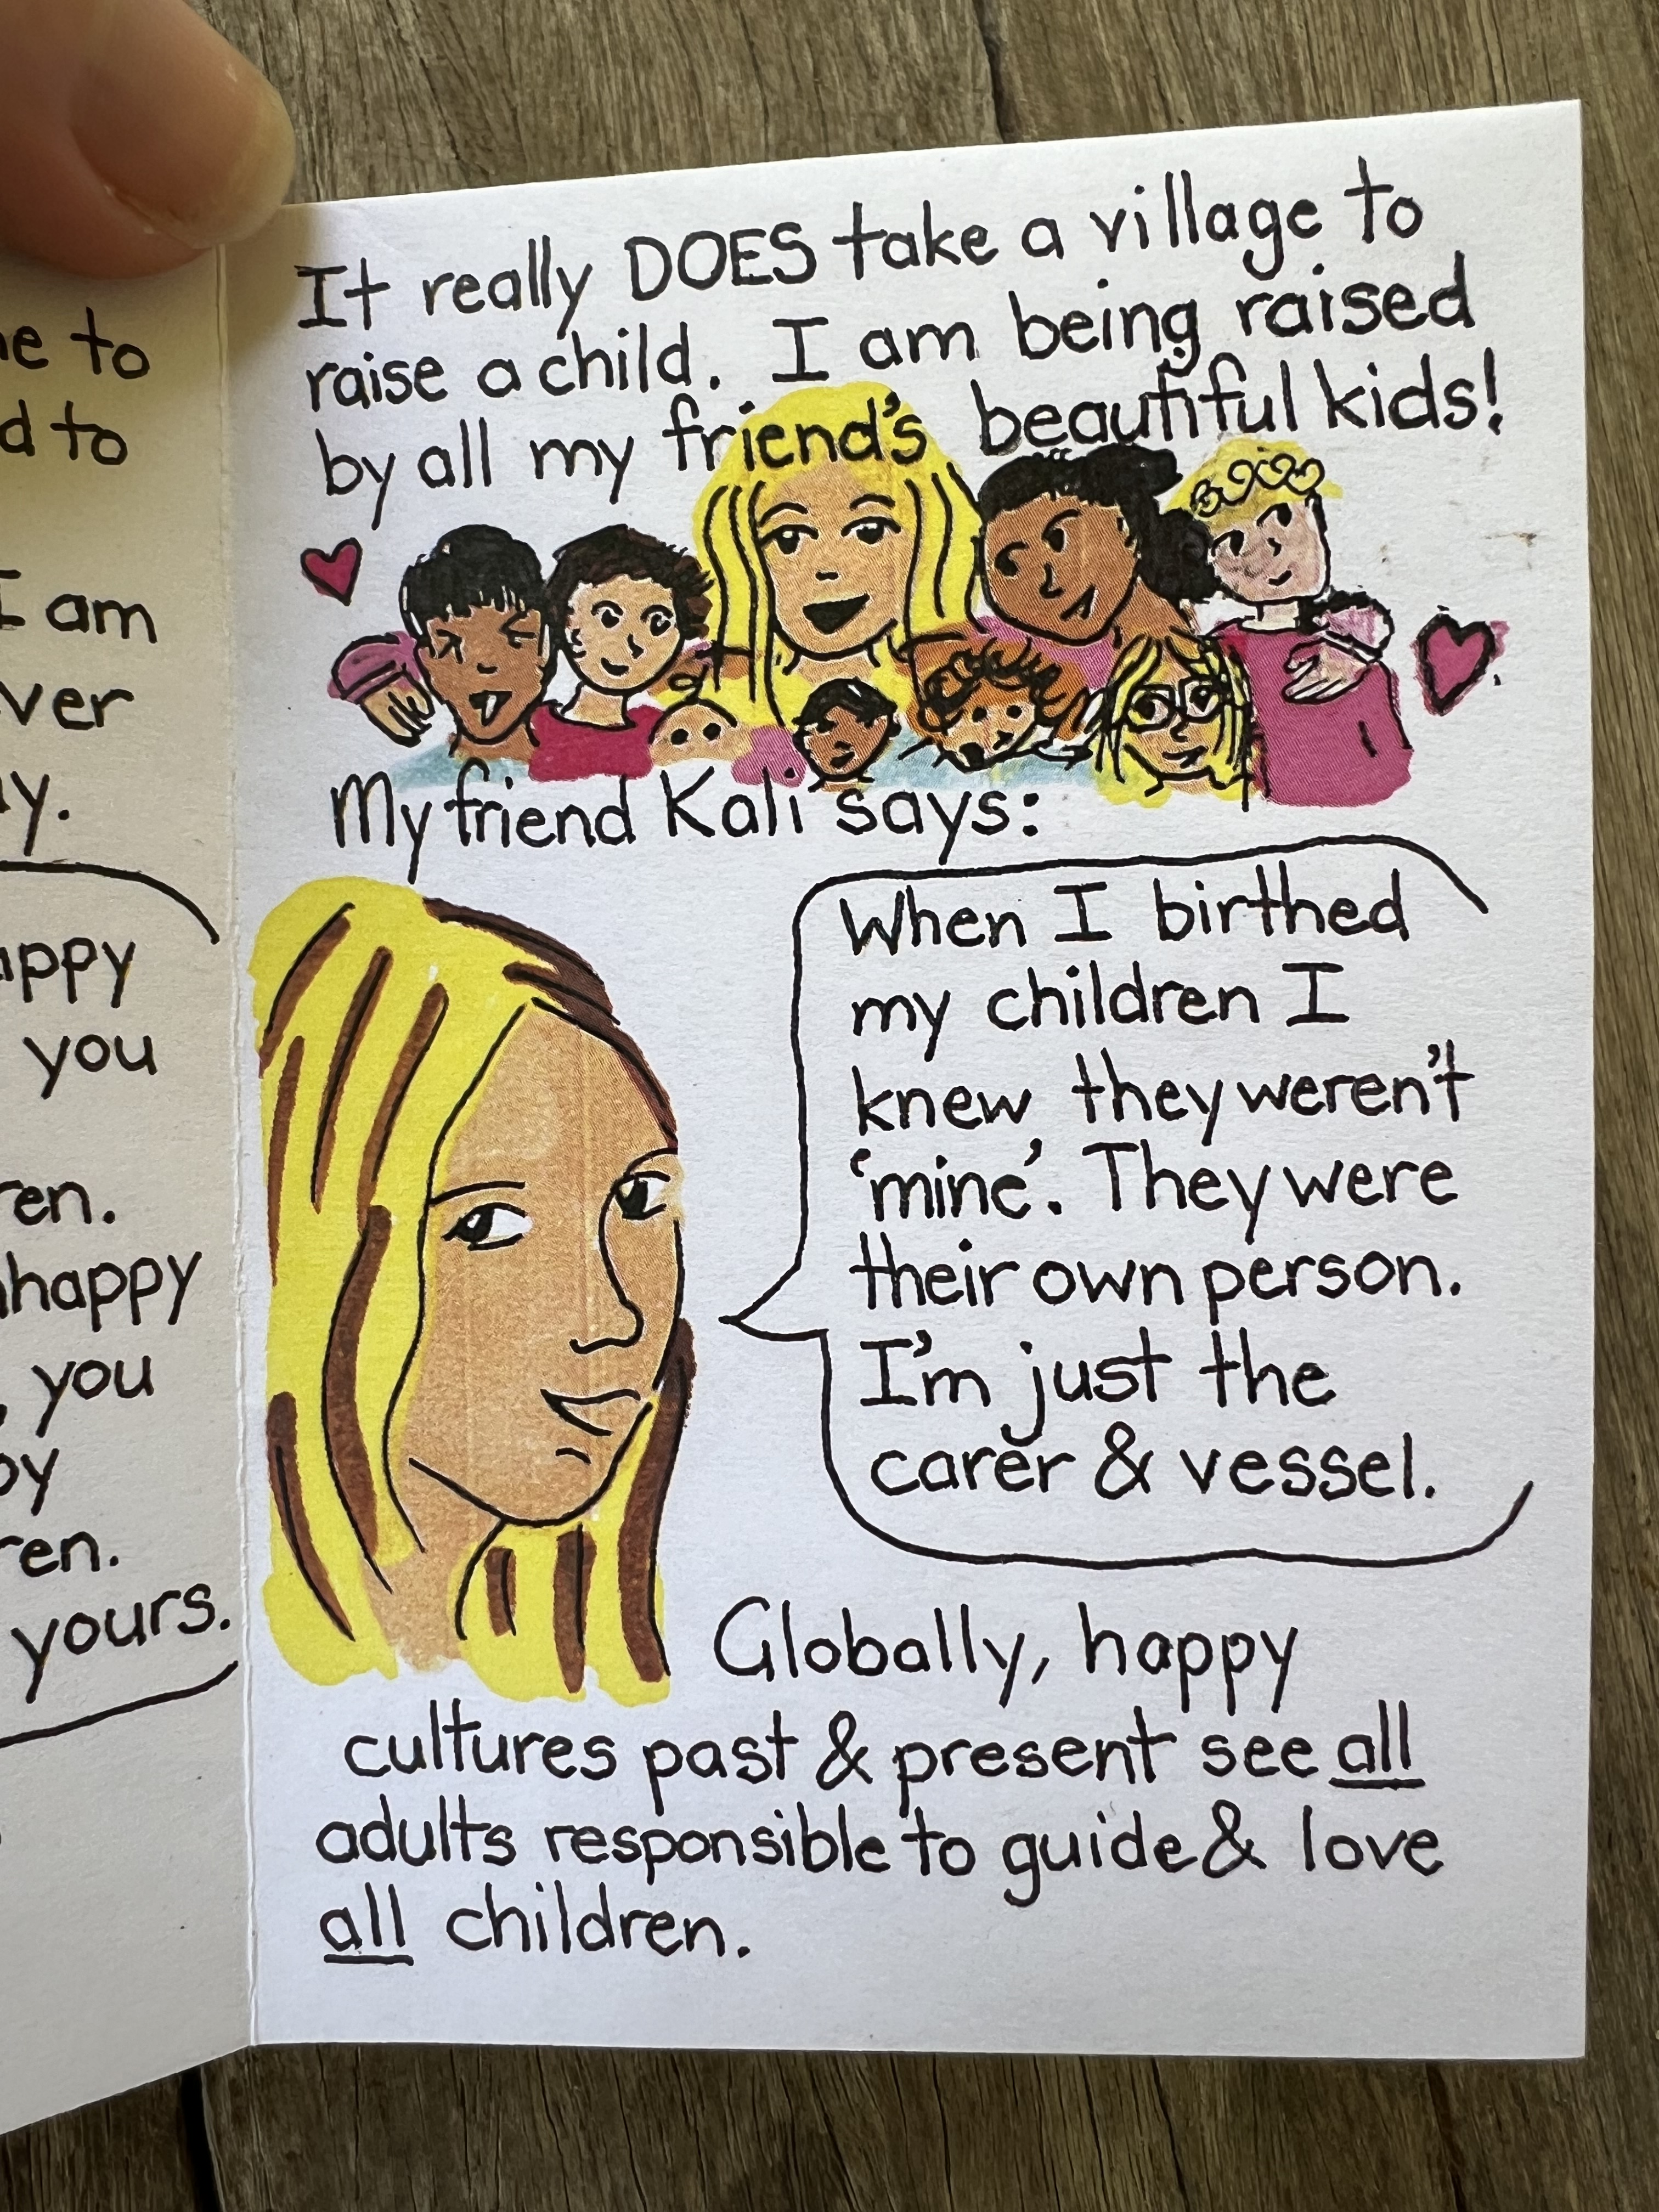 e to
d to
I am
ver
y.
appy
you
ren.
happy
, you
py
ren.
yours.
It really DOES take a village to
raise a child. I am being raised
by all my friend's beautiful kids!
My friend Kali says:
When I birthed
my children I
knew they weren't
'mine'. They were
their own person.
I'm just the
carer & vessel.
Globally, happy
cultures past & present see all
adults responsible to guide & love
all children.